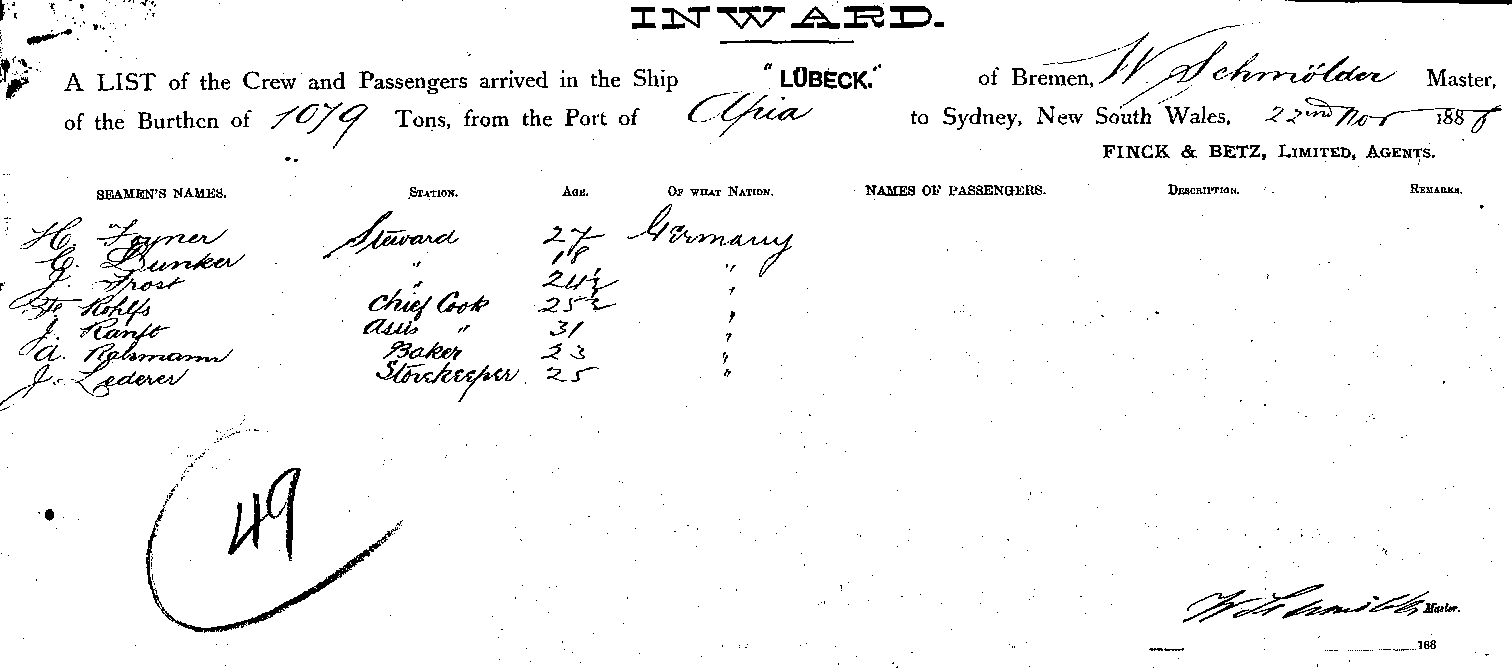 INWARD.
A LIST of the Crew and Passengers arrived in the Ship "LÜBECK." of Bremen, W Schmölder Master,
of the Burthen of 1079 Tons, from the Port of Apia to Sydney, New South Wales, 22nd Nov 1886
FINCK & BETZ, LIMITED, AGENTS.
SEAMEN'S NAMES. STATION. AGE. OF WHAT NATION. NAMES OF PASSENGERS. DESCRIPTION. REMARKS.
H. Steward 27 Germany
Bunker " 18 "
J. Frost " 24½ "
F. Rohlfs Chief Cook 25½ "
J. Ranft Assis " 31 "
A. Baker 23 "
J. Lederer Storekeeper 25 "
49
W Schmölder Master.
188